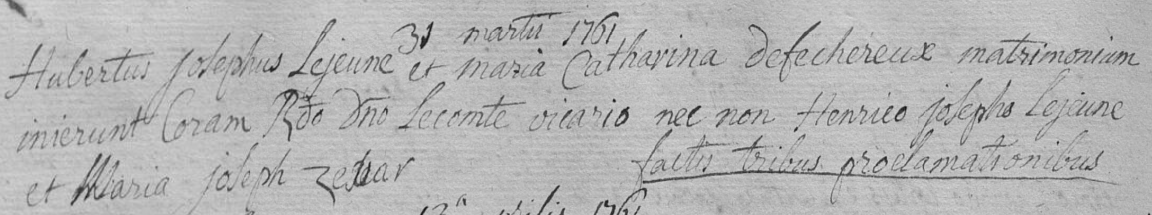 31 martii 1761
Hubertus josephus Lejeune et maria Catharina defechereux matrimonium
inierunt Coram Rdo dno Lecomte vicario nec non Henrico josepho Lejeune
et Maria joseph factis tribus proclamationibus
13a aprilis 1761